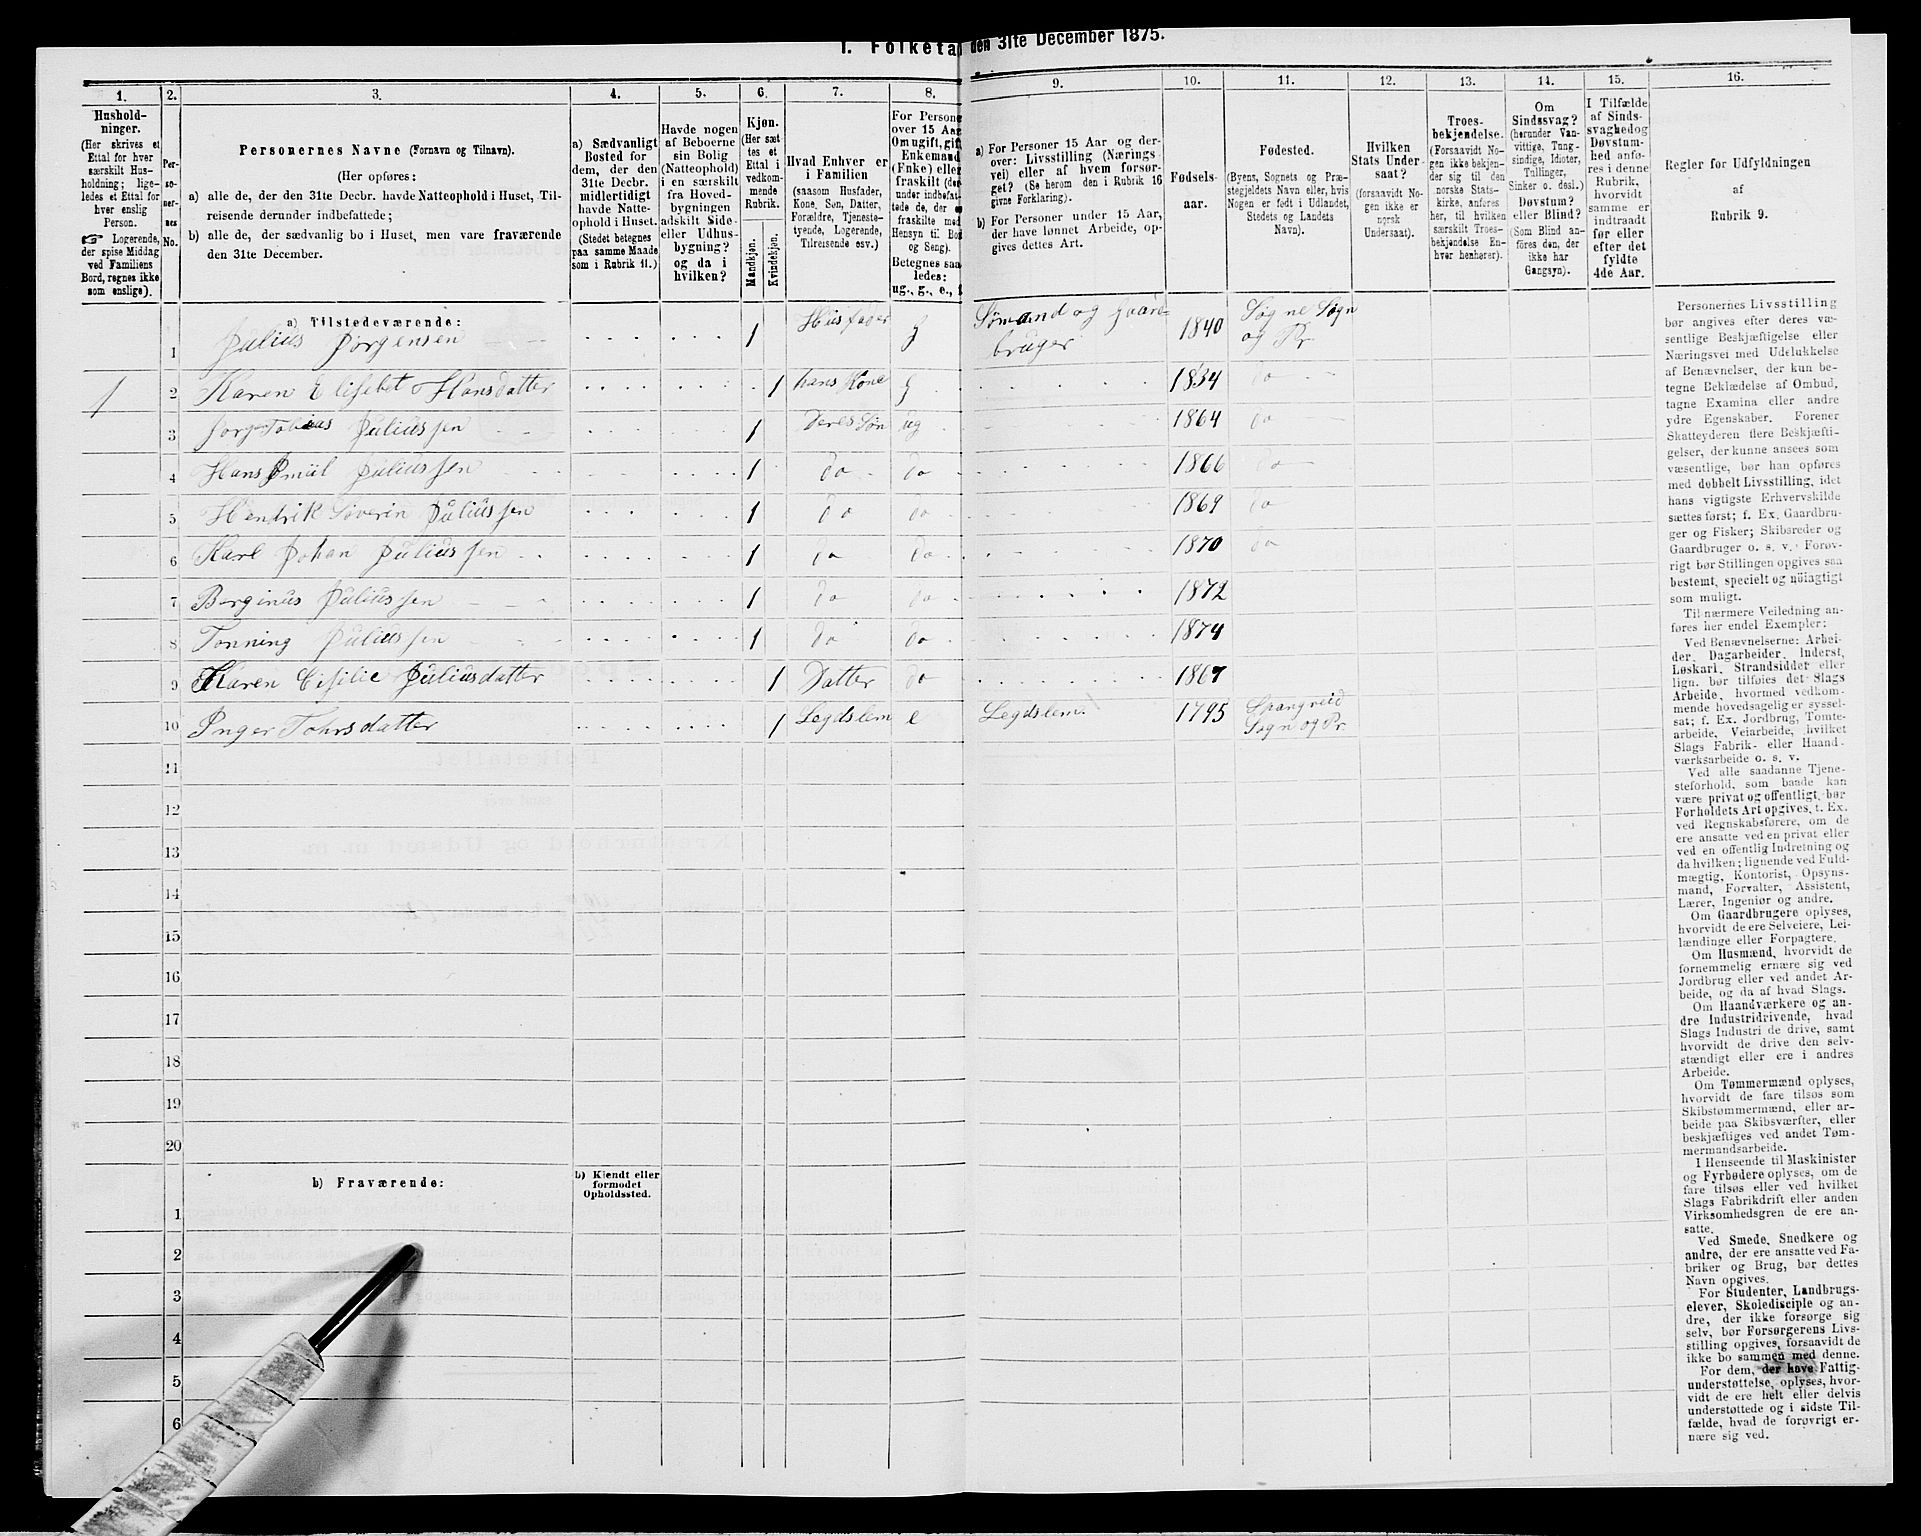 I. Folketal den 31te December 1875.
1. 2. 3. 4. 5. 6. 7. 8. 9. 10. 11. 12. 13. 14. 15. 16.
Hushold-
ninger.
(Her skrives et
Ettal for hver
særskilt Hus-
holdning; lige-
ledes et Ettal for
hver enslig
Person.
☞ Logerende,
der spise Middag
ved Familiens
Bord, regnes ikke
som enslige).
Per-
so-
ner-
nes
No.
Personernes Navne (Fornavn og Tilnavn).
(Her opføres:
a) alle de, der den 31te Decbr. havde Natteophold i Huset, Til-
reisende derunder indbefattede;
b) alle de, der sædvanlig bo i Huset, men vare fraværende
den 31te December.
a) Sædvanligt
Bosted for
dem, der den
31te Decbr.
midlertidigt
havde Natte-
ophold i Huset.
(Stedet betegnes
paa samme Maade
som i Rubrik 11.)
Havde nogen
af Beboerne
sin Bolig
(Natteophold)
i en særskilt
fra Hoved-
bygningen
adskilt Side-
eller Udhus-
bygning?
og da i
hvilken?
Kjøn.
(Her sæt-
tes et
Ettal i
vedkom-
mende
Rubrik.
Mandkjøn.
Kvindekjøn.
Hvad Enhver er
i Familien
(saasom Husfader,
Kone, Søn, Datter,
Forældre, Tjeneste-
tyende, Logerende,
Tilreisende osv.)
For Persone
over 15 Aar
Om ugift, gift
Enkemand
(Enke) eller
fraskilt (der
under indbefat-
tede de, der e
fraskilte med
Hensyn til Bo
og Seng).
Betegnes saa
ledes:
ug., g., e., f
a) For Personer 15 Aar og der-
over: Livsstilling (Nærings
vei) eller af hvem forsør-
get? (Se herom den i Rubrik 16
givne Forklaring).
b) For Personer under 15 Aar,
der have lønnet Arbeide, op-
gives dettes Art.
Fødsels-
aar.
Fødested.
(Byens, Sognets og Præ-
stegjeldets Navn eller, hvis
Nogen er født i Udlandet,
Stedets og Landets
Navn).
Hvilken
Stats Under-
saat?
(forsaavidt No-
gen ikke er
norsk
Undersaat).
Troes-
bekjendelse.
(Forsaavidt No-
gen ikke bekjen-
der sig til den
norske Stats-
kirke, anføres
her, til hvilken
særskilt Troes-
bekjendelse En-
hver henhører).
Om
Sindssvag?
(herunder Van-
vittige, Tung-
sindige, Idioter,
Tullinger,
Sinker o. desl.)
Døvstum?
eller Blind?
(Som Blind an-
føres den, der
ikke har
Gangsyn).
I Tilfælde
af Sinds-
svaghed og
Døvstum-
hed anfø-
res i denne
Rubrik,
hvorvidt
samme er
indtraadt
før eller
efter det
fyldte
4de Aar.
Regler for Udfyldningen
af
Rubrik 9.
a) Tilstedeværende:
1 Julius Jørgensen 1 Husfader g Sømand og Gaard-
bruger 1840 Søgne Sogn
og Pr
1 2 Karen Elisebet Hansdatter 1 hans Kone g 1834 do
3 Jørg Tobias Juliussen 1 Deres Søn ug 1864 do
4 Hans Emiil Juliussen 1 do do 1866 do
5 Hendrik Severin Juliussen 1 do do 1869 do
6 Karl Johan Juliussen 1 do do 1870 do
7 Berginus Juliussen 1 do do 1872
8 Tønning Juliussen 1 do do 1874
9 Karen Cisilie Juliusdatter 1 Datter do 1867
10 Inger Tohrsdatter 1 Legdslem e Legdslem. 1795 Spangreid
Sogn og Pr.
11
12
13
14
15
16
17
18
19
20
b) Fraværende:
b) Kjendt eller
formodet
Opholdssted.
1
2
3
4
5
6
Personernes Livsstilling
bør angives efter deres væ-
sentlige Beskjæftigelse eller
Næringsvei med Udelukkelse
af Benævnelser, der kun be-
tegne Beklædelse af Ombud,
tagne Examina eller andre
ydre Egenskaber. Forener
Skatteyderen flere Beskjæfti-
gelser, der kunne ansees som
væsentlige, bør han opføres
med dobbelt Livsstilling, idet
hans vigtigste Erhvervskilde
sættes først; f. Ex. Gaardbru-
ger og Fisker; Skibsreder og
Gaardbruger o. s. v. Forøv-
rigt bør Stillingen opgives saa
bestemt, specielt og nøiagtigt
som muligt.
Til nærmere Veiledning an-
føres her endel Exempler:
Ved Benævnelserne: Arbei-
der, Dagarbeider, Inderst,
Løskarl, Strandsidder eller
lign. bør tilføies det Slags
Arbeide, hvormed vedkom-
mende hovedsagelig er syssel-
sat; f. Ex. Jordbrug, Tomte-
arbeide, Veiarbeide, hvilket
Slags Fabrik- eller Haand-
værksarbeide o. s. v.
Ved alle saadanne Tjene-
steforhold, som baade kan
være privat og offentligt, bør
Forholdets Art opgives, t. Ex.
ved Regnskabsførere, om de
ere ansatte ved en privat eller
ved en offentlig Indretning og
da hvilken; lignende ved Fuld-
mægtig, Kontorist, Opsyns-
mand, Forvalter, Assistent,
Lærer, Ingeniør og andre.
Om Gaardbrugere oplyses,
hvorvidt de ere Selveiere, Lei-
lændinge eller Forpagtere.
Om Husmænd, hvorvidt de
fornemmelig ernære sig ved
Jordbrug eller ved andet Ar-
beide, og da af hvad Slags.
Om Haandværkere og an-
dre Industridrivende, hvad
Slags Industri de drive, samt
hvorvidt de drive den selv-
stændigt eller ere i andres
Arbeide.
Om Tømmermænd oplyses,
hvorvidt de fare tilsøs som
Skibstømmermænd, eller ar-
beide paa Skibsværfter, eller
beskjæftiges ved andet Tøm-
mermandsarbeide.
I Henseende til Maskinister
og Fyrbødere oplyses, om de
fare tilsøs eller ved hvilket
Slags Fabrikdrift eller anden
Virksomhedsgren de ere an-
satte.
Ved Smede, Snedkere og
andre, der ere ansatte ved Fa-
briker og Brug, bør dettes
Navn opgives.
For Studenter, Landbrugs-
elever, Skoledisciple og an-
dre, der ikke forsørge sig
selv, bør Forsørgerens Livs-
stilling opgives, forsaavidt de
ikke bo sammen med denne.
For dem, der have Fattig-
understøttelse, oplyses, hvor-
vidt de ere helt eller delvis
understøttede og i sidste Til-
fælde, hvad de forøvrigt er-
nære sig ved.